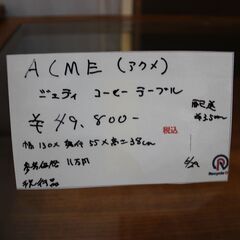 ACME (アクメ)
ジェティ コーヒーテーブル
¥49,800-
税込
配送
¥3.5
幅130×奥行55×高さ38cm
参考価格 11万円
Recycle